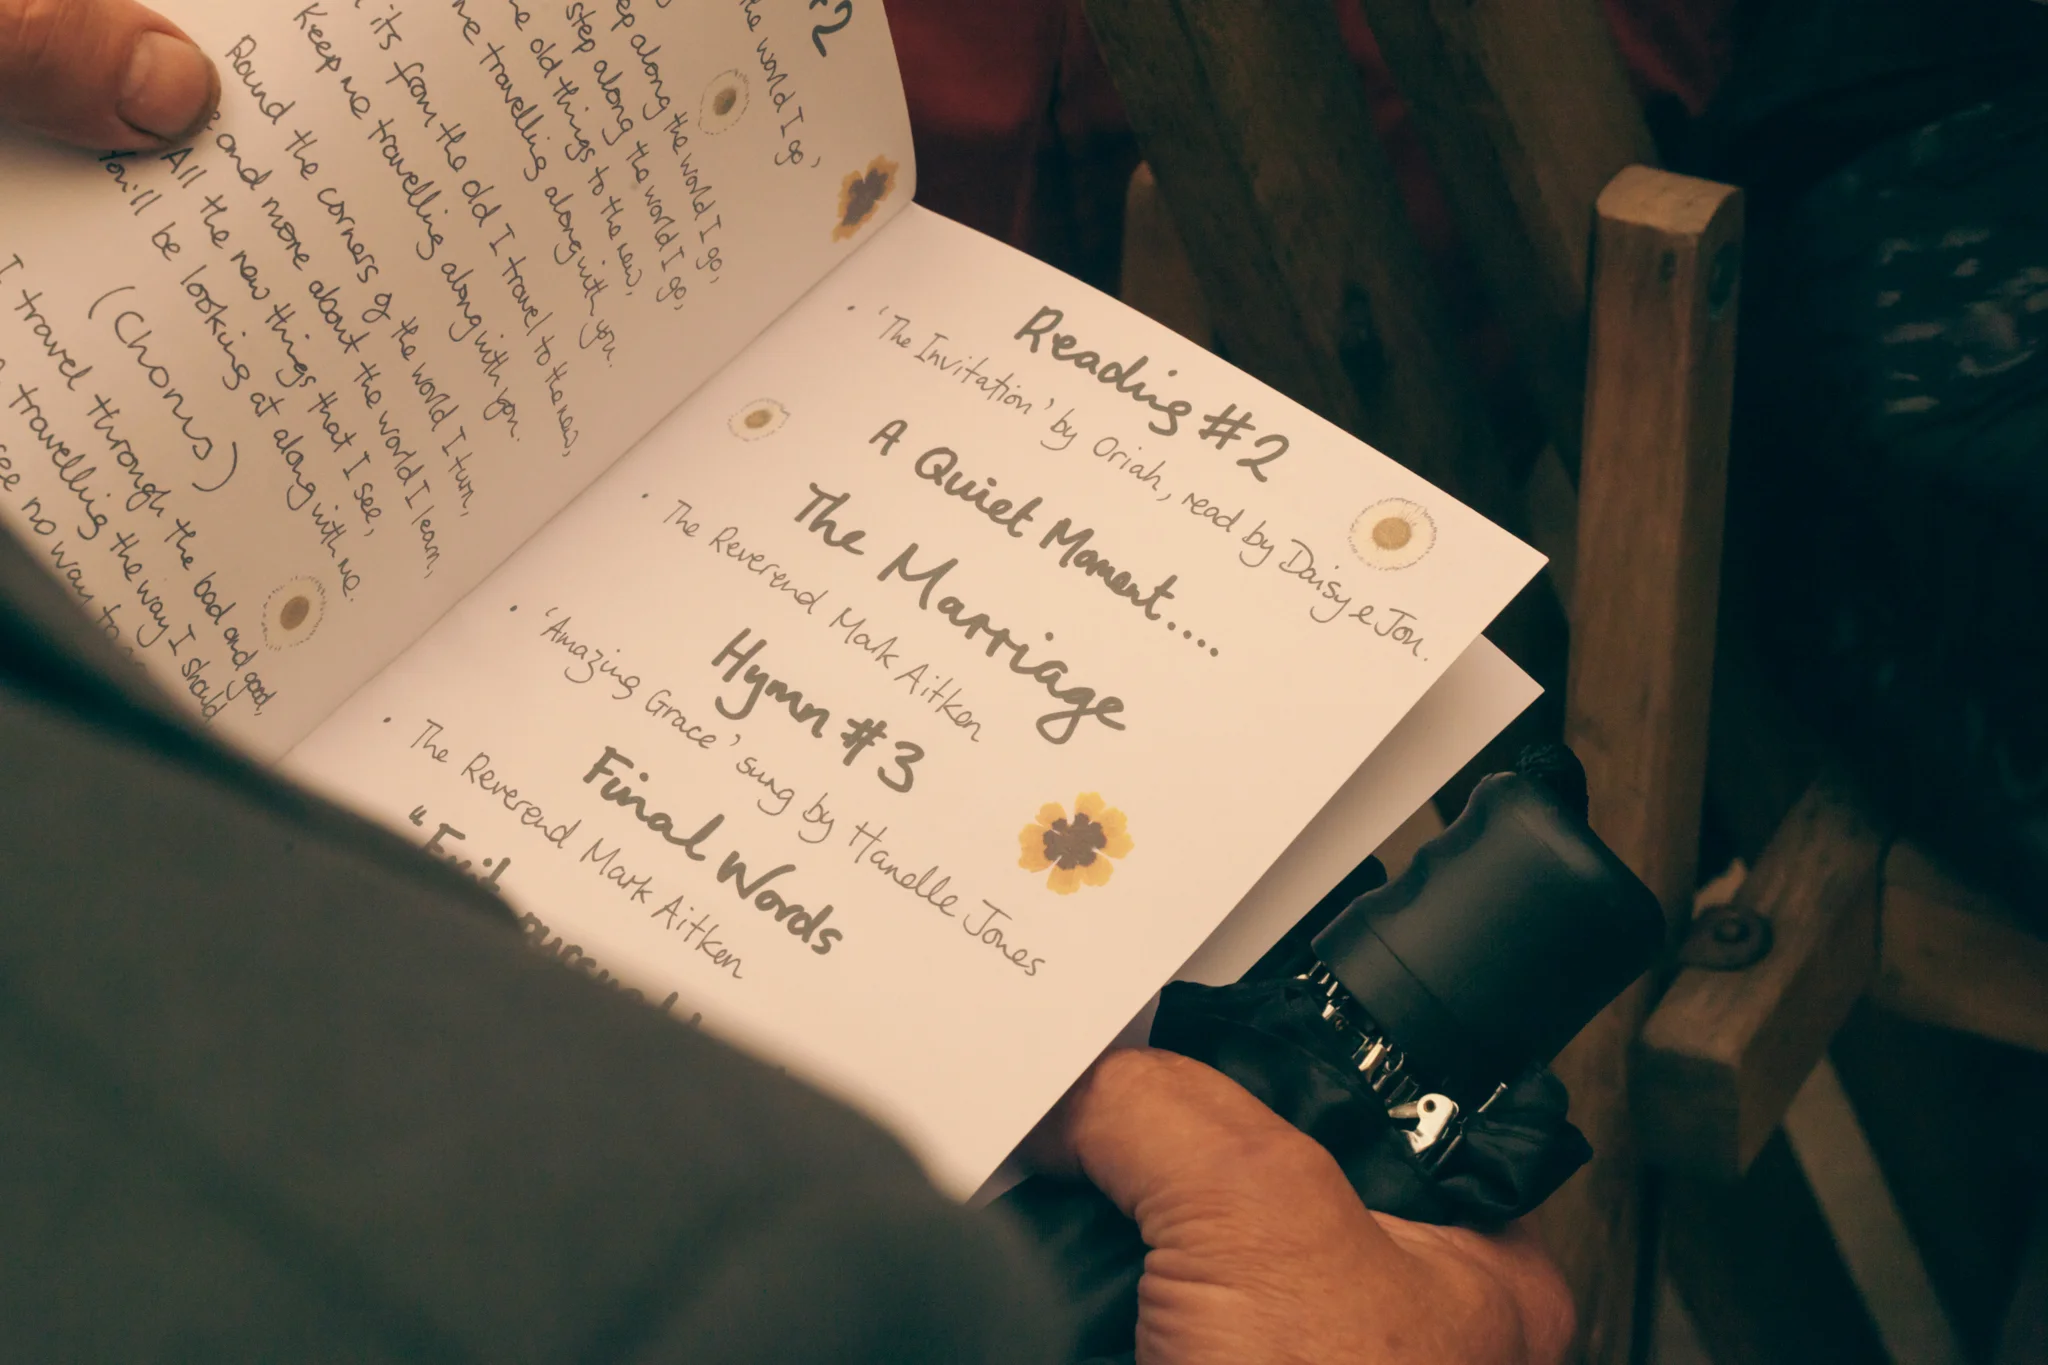 2
world I go,
along the world I go,
step along the world I go,
old things to the new,
me travelling along with you.
it's from the old I travel to the new,
Keep me travelling along with you.
Round the corners of the world I turn,
and more about the world I learn,
All the new things that I see,
You'll be looking at along with me.
(Chorus)
I travel through the bad and good,
travelling the way I should
see no way to
Reading #2
• 'The Invitation' by Oriah, read by Daisy & Jon.
A Quiet Moment....
The Marriage
• The Reverend Mark Aitken
Hymn #3
• 'Amazing Grace' sung by Hanelle Jones
Final Words
• The Reverend Mark Aitken
"Exit